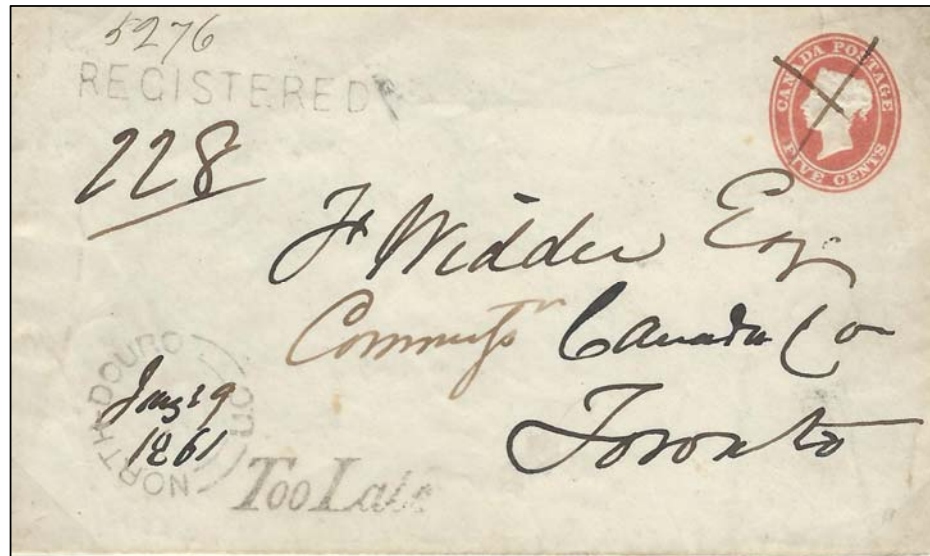 5276
REGISTERED
CANADA POSTAGE
FIVE CENTS
228
Fr Widder Esq
Commissr Canada Co
Toronto
NORTH DOURO U.C.
1861
Too Late